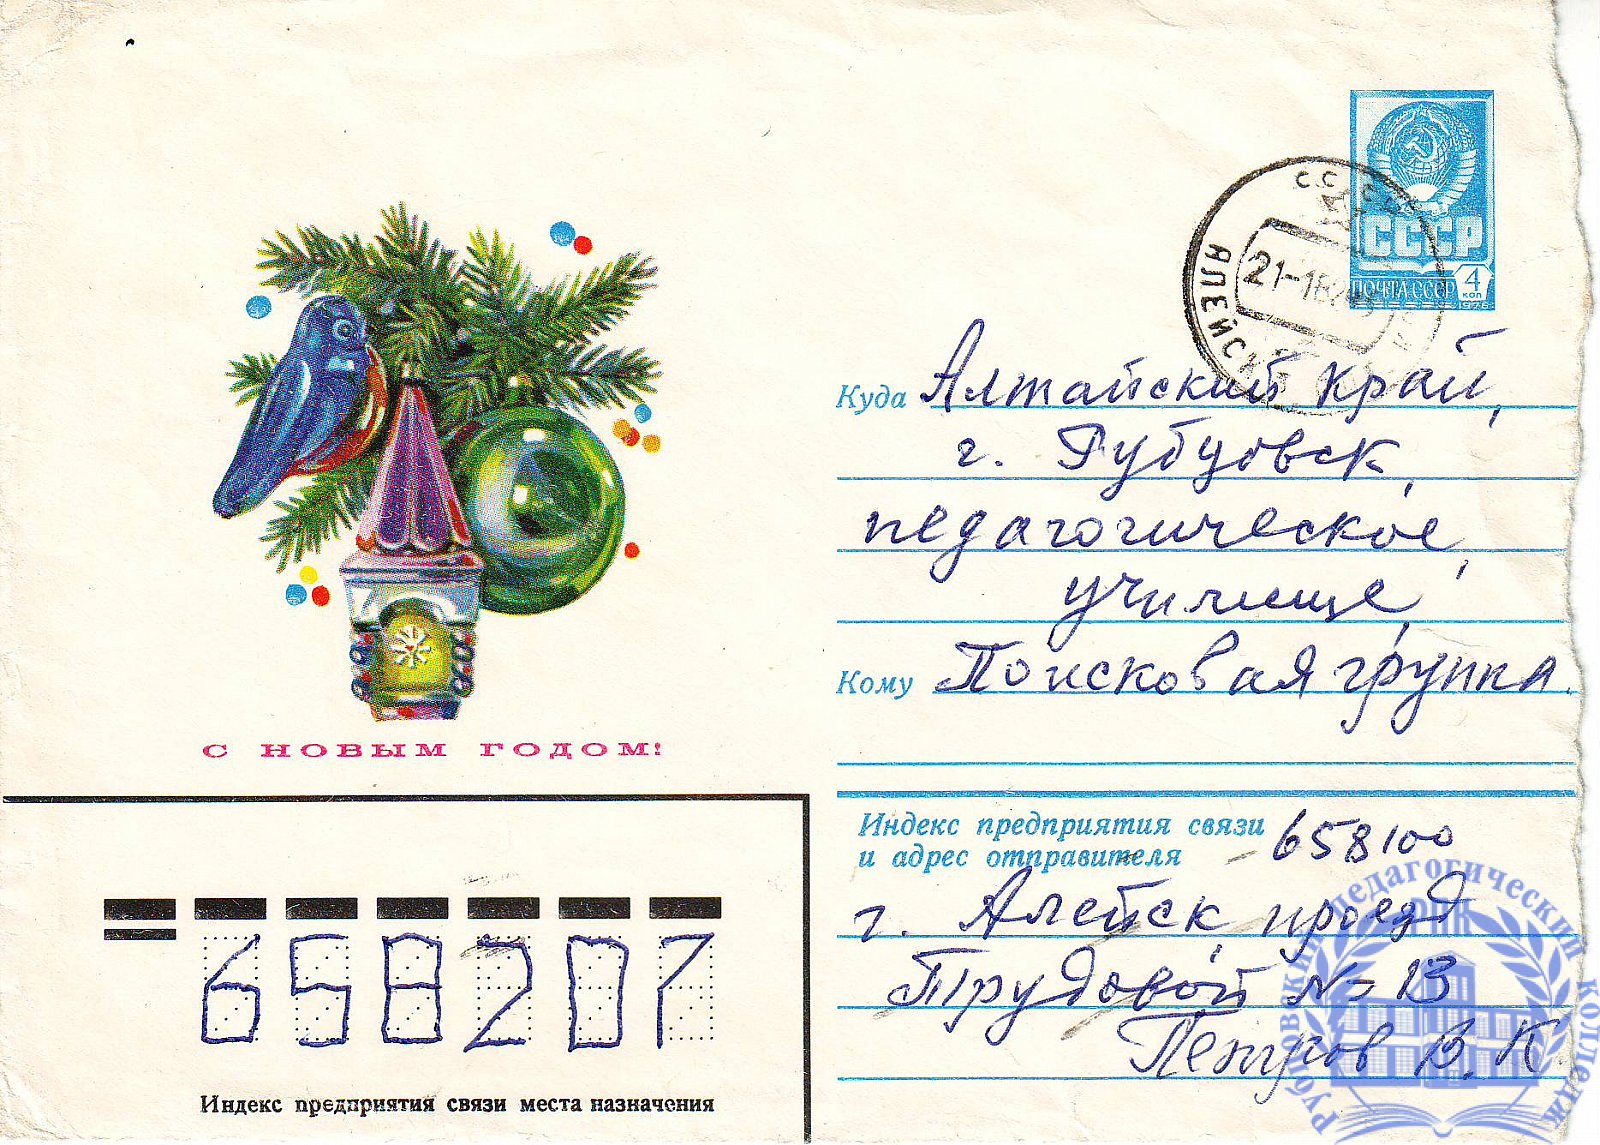 СССР
ПОЧТА СССР
4
коп
1978
АЛЕЙСК
21-1
Куда Алтайский край,
г. Рубцовск,
педагогическое
училище,
Кому Поисковая группа.
С НОВЫМ ГОДОМ!
Индекс предприятия связи
и адрес отправителя 658100
г. Алейск проезд
Трудовой № 13
Петров В. К.
658207
Индекс предприятия связи места назначения
Рубцовский педагогический колледж
РПК